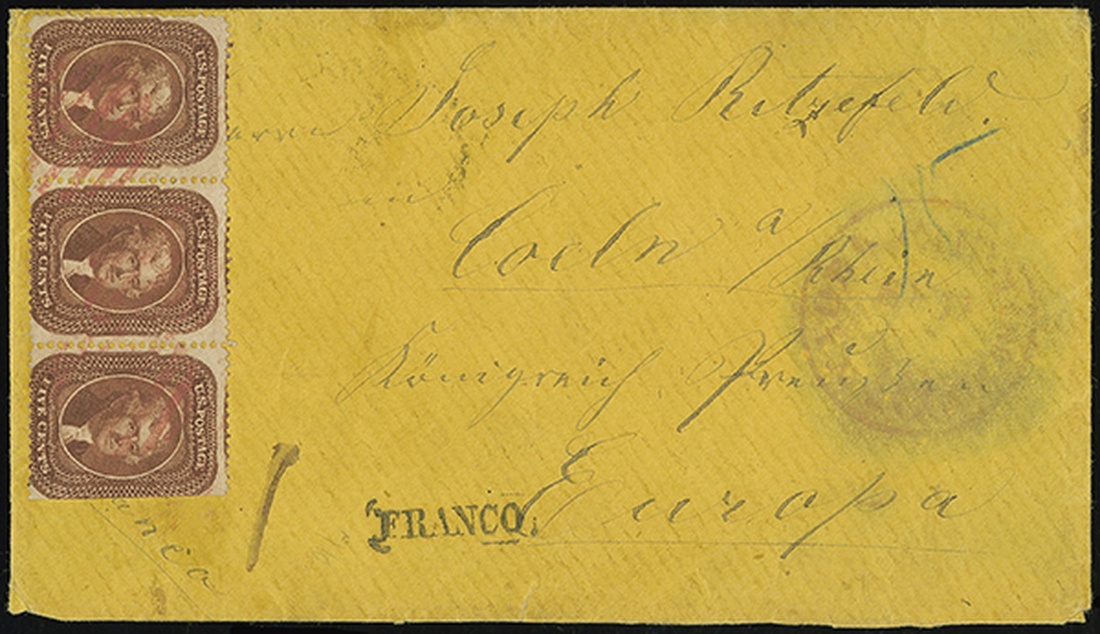 U.S. POSTAGE
FIVE CENTS
U.S. POSTAGE
FIVE CENTS
U.S. POSTAGE
FIVE CENTS
Herrn Joseph Ritzefeld.
in
Coeln a/Rhein
Königreich Preußen
Europa
FRANCO.